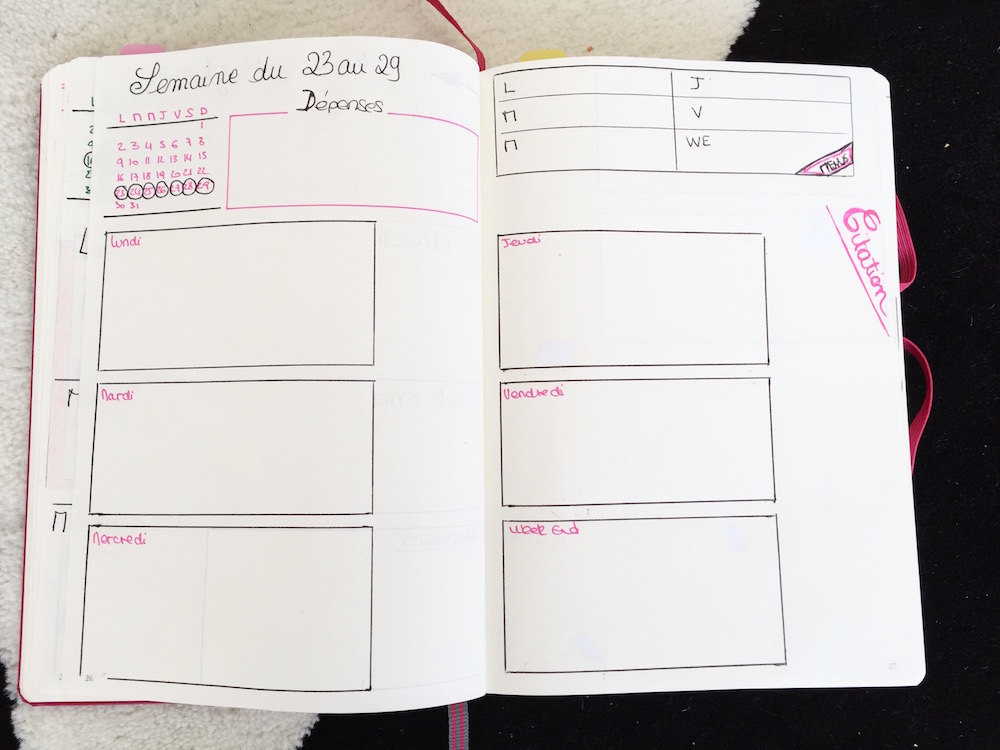 Semaine du 23 au 29
Dépenses
L M M J V S D
1
2 3 4 5 6 7 8
9 10 11 12 13 14 15
16 17 18 19 20 21 22
23 24 25 26 27 28 29
30 31
Lundi
Mardi
Mercredi
26
L
M
M
J
V
WE
Citation
Jeudi
Vendredi
Week End
27
L
M